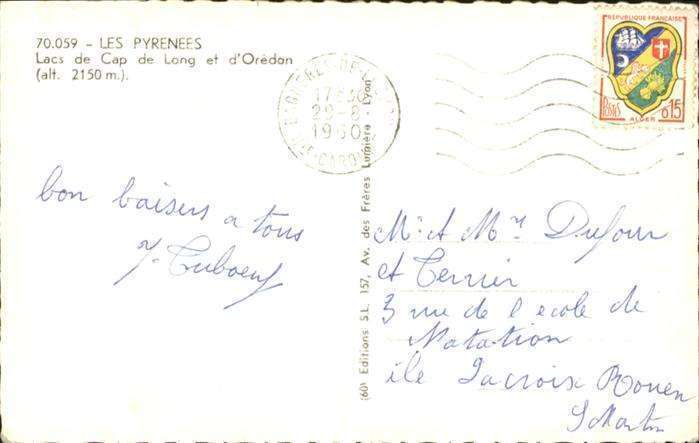 70.059 - LES PYRENEES
Lacs de Cap de Long et d'Orédon
(alt. 2150 m.).
17H30
29-8
1960
REPUBLIQUE FRANÇAISE
POSTES
0,15
ALGER
bon baisers a tous
Y. Tuboeuf
(60) Editions S.L. 157, Av. des Frères Lumière - Lyon
Mr A Mr Dufour
et Terrier
3 rue de l'ecole de
Natation
île Lacroix Rouen
S Martin